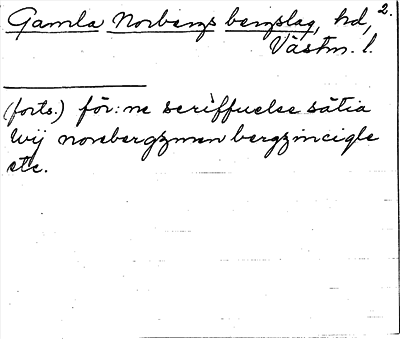 Gamla Norbergs bergslag, hd, 2.
Västm. l.
(forts.) för:ne scriffuelse sätia
wij norebergzmen bergzincigle
etc.